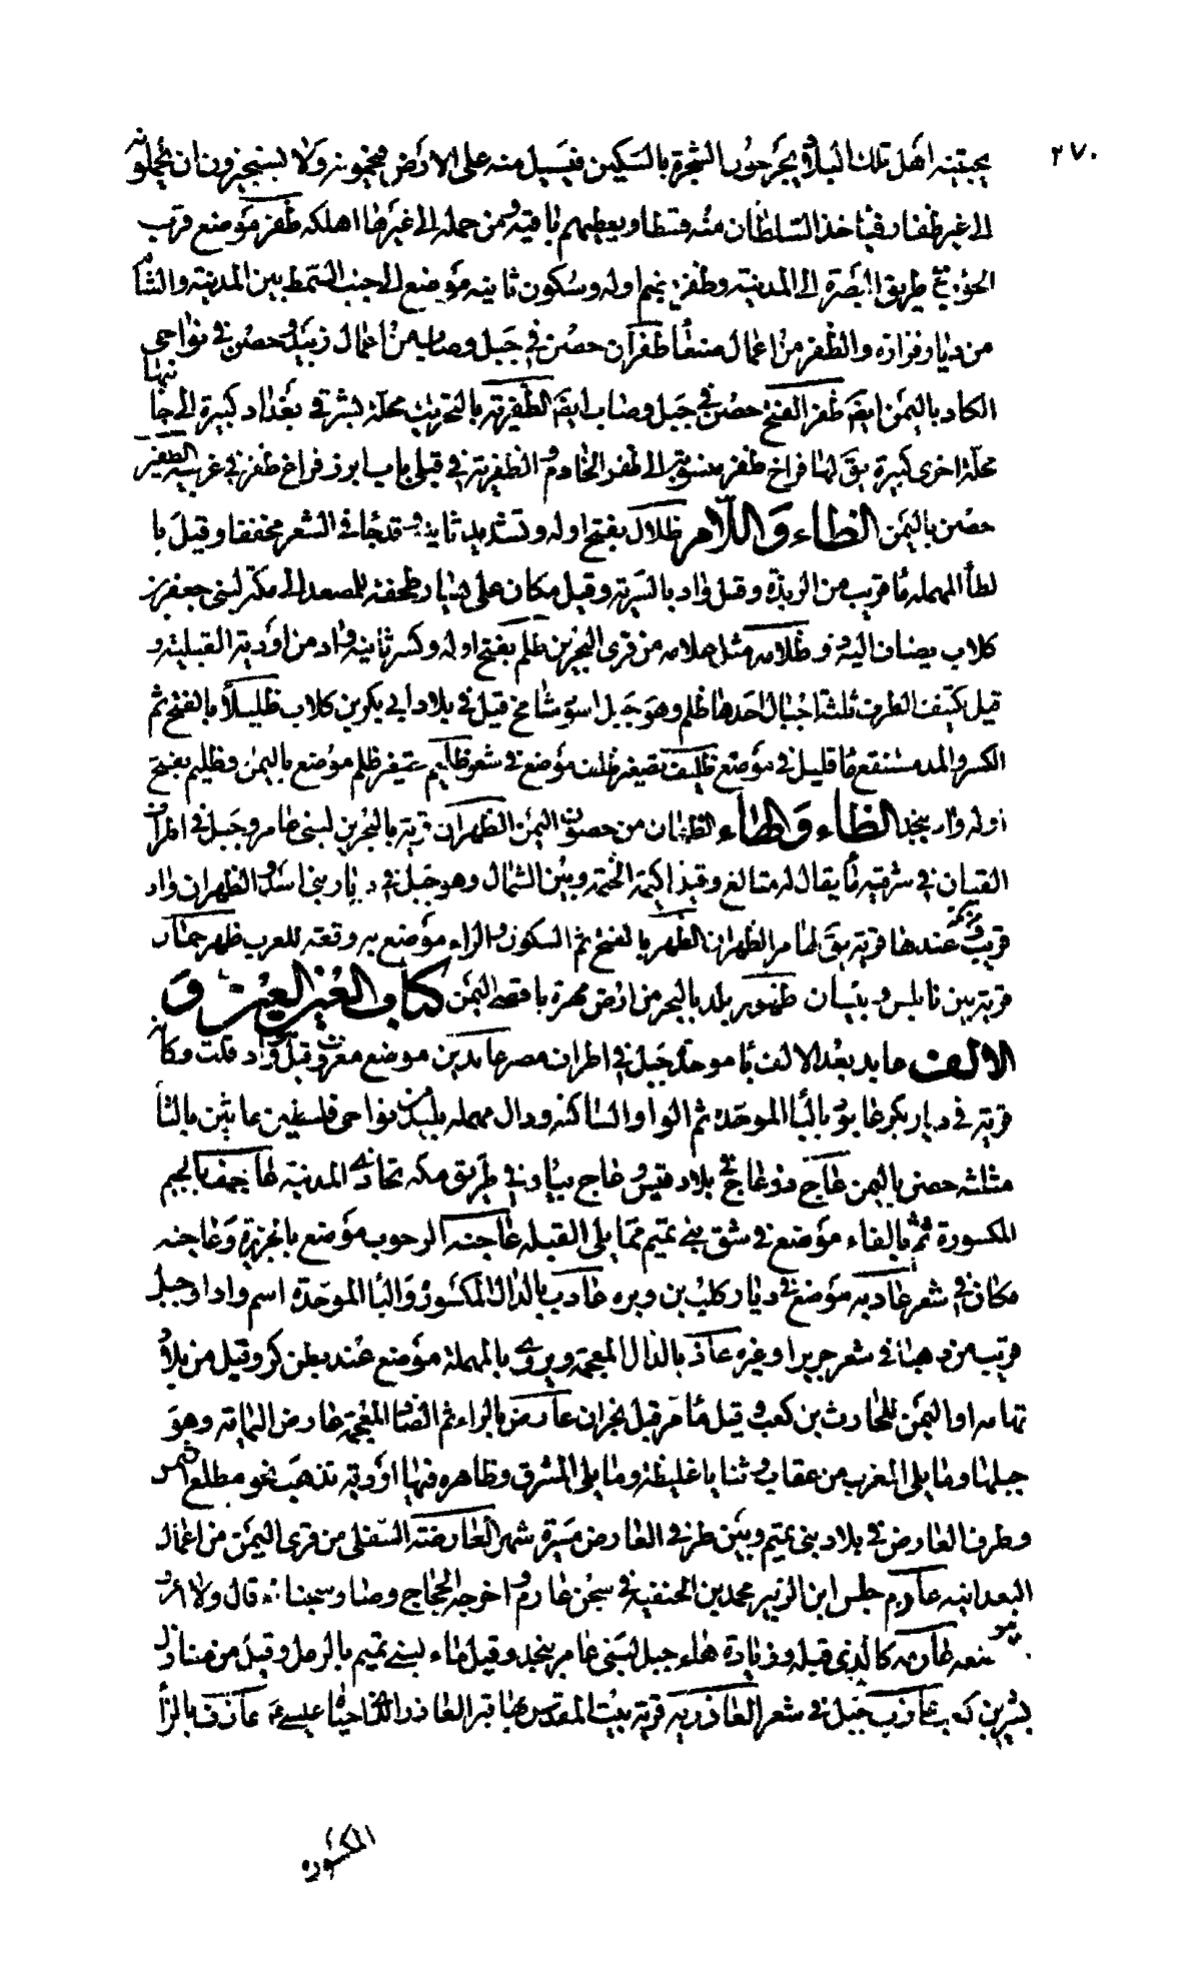 ٢٧٠
يجيئنه اهل تلك البلاد يجرحون الشجرة بالسكين فيسيل منه على الارض فيجمونه ولا يستجيزون ان يحملوه
الى غير ظفار فياخذ السلطان منه قسطا ويعطيهم باقيه ومن حمله الى غيرها اهلكه ظفر موضع قرب
الحوءب في طريق البصرة الى المدينة وظفر بضم اوله وسكون ثانيه موضع الى جنب الشميط بين المدينة والشام
من ديار فزاره والظفر من اعمال صنعا ظفران حصن في جبل وصاب من اعمال زبيد وحصن في نواحى
الكاد باليمن ايضا ظفر الفنج حصن في جبل وصاب ايضا الظفرية بالتحريك محلة بشرقي بغداد كبيرة الى جانبها
محلة اخرى كبيرة يق لها قراح ظفر منسوبة الى ظفر الخادم و الظفرية في قبلى باب ابرز قراح ظفر في غربيه الظفير
حصن باليمن الظاء واللام ظلال بفتح اوله وتشديد ثانيه وقد جا في الشعر مخففا وقيل با
لطا المهمله ما قريب من الربذة وقيل واد بالشربة وقيل مكان على يسار طخفة للمصعد الى مكة لبنى جعفر بن
كلاب يضاف اليه و ظلامه مثل علامه من قرى البحرين ظلم بفتح اوله وكسر ثانيه واد من اودية القبلية و
قيل بكتف الطرف ثلثة اجبال احدها ظلم وهو جبل اسود شامخ قيل في بلاد ابي بكر بن كلاب ظليلا بالفتح ثم
الكسر والمد مستنقع ما قليل في موضع ظليف تصغير ظلف موضع في شعر ظليم تصغير ظلم موضع باليمن وظليم بفتح
اوله واد بنجد الظاء والهاء الظهران من حصون اليمن الظهران قرية بالبحرين لبنى عامر وجبل في اطراف
القنان في شرقيه ما يقال له متالع وقيذ اكيمة الخيمة وبين الشمال وهو جبل في ديار بنى اسد والظهران واد
قريب مكة عندها قرية يق لها مر الظهران الظهر بالفتح ثم السكون والراء موضع به وقعة للعرب ظهر حمار
قرية بين نابلس وبيسان ظهور بلد بالبحر من ارض مهرة باقصى اليمن كتاب العين العين و
الالف عابد بعد الالف با موحدة جبل في اطراف مصر عابدين موضع معروف وقيل واد قلت وكانه
قرية في ديار بكر عابود بالبا الموحده ثم الواو الساكنه ودال مهمله بليد من نواحى فلسطين عاثين بالثا
مثلثه حصن باليمن عاج ذو عاج في بلاد قيس عاج بيار في طريق مكة تحاذي المدينة عاجف بالجيم
المكسورة ثم بالفاء موضع في شق بني تميم مما يلى القبله عاجنه الرحوب موضع بالجزيرة وعاجنه
مكان في شعر عاديه موضع في ديار كلب بن وبره عادب بالدال المكسورة والبا الموحدة اسم واد او جبل
قريب من رهبى في شعر جرير او غيره عاذ بالذال المعجمة ويروي بالمهملة موضع عند بطن كر وقيل من بلاد
تهامه او اليمن للحارث بن كعب و قيل ما مر قبل نجران عارض بالراء ثم الضاد المعجمة عارض اليمامة وهو
جبلها وما يلى المغرب من عقاب و ثنايا غليظة وما يلى المشرق وظاهره فيها اودية تذهب نحو مطلع الشمس
وطرفا العارض في بلاد بنى تميم وبين طرفي العارض مسيرة شهر العارضة السفلى من قرى اليمن من اعمال
البعدانيه عارم حبس ابن الزبير محمد بن الحنفيه في سجن عارم و اخرجه الحجاج وصار سجنا قال ولا اعرف
موضعه عاريه كالذى قبله وزيادة هاء جبل لبنى عامر بنجد وقيل ماء لبنى تميم بالرمل وقيل من منازل
بشير بن كعب عازب جبل في شعر العازريه قرية ببيت المقدس بها قبر العازر الذي احياه عيسى ع عازف بالزا
المكسوره